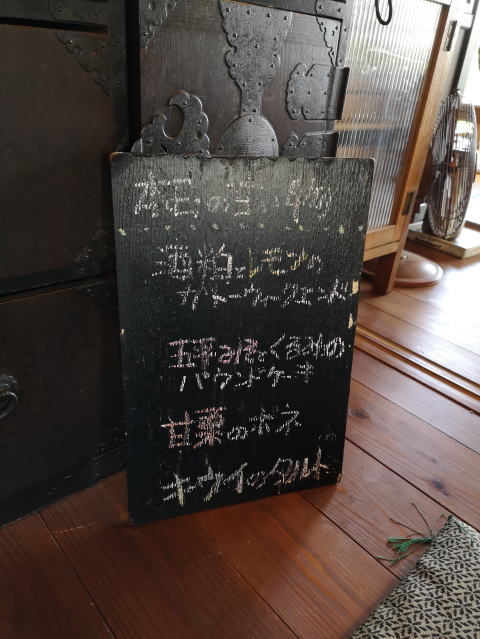 本日の甘い物
酒粕とレモンの
ガトーウィークエンド
くるみの
パウンドケーキ
甘栗のボネ
キウイのタルト